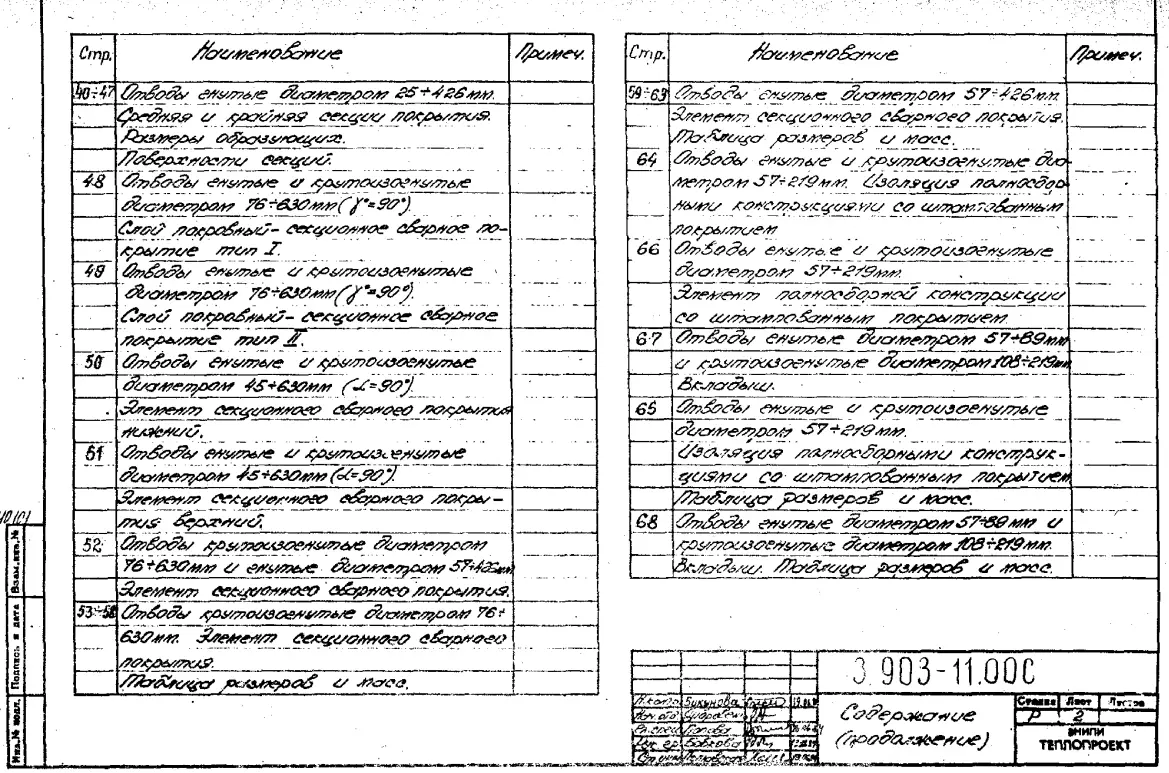 Стр. Наименование Примеч.
40÷47 Отводы гнутые диаметром 25÷426мм.
Средняя и крайняя секции покрытия.
Размеры образующих.
Поверхности секций.
48 Отводы гнутые и крутоизогнутые
диаметром 76÷630мм(γ°=90°).
Слой покровный-секционное сварное по-
крытие тип I.
49 Отводы гнутые и крутоизогнутые
диаметром 76÷630мм(γ°=90°).
Слой покровный-секционное сварное
покрытие тип II.
50 Отводы гнутые и крутоизогнутые
диаметром 45÷630мм (α=90°).
Элемент секционного сварного покрытия
нижний.
51 Отводы гнутые и крутоизогнутые
диаметром 45÷630мм(α=90°).
Элемент секционного сварного покры-
тия верхний.
52 Отводы крутоизогнутые диаметром
76÷630мм и гнутые диаметром 57÷426мм
Элемент секционного сварного покрытия.
53÷58 Отводы крутоизогнутые диаметром 76÷
630мм. Элемент секционного сварного
покрытия.
Таблица размеров и масс.
Стр. Наименование Примеч.
59÷63 Отводы гнутые диаметром 57÷426мм
Элемент секционного сварного покрытия.
Таблица размеров и масс.
64 Отводы гнутые и крутоизогнутые диа-
метром 57÷219мм. Изоляция полносбор-
ными конструкциями со штампованным
покрытием
66 Отводы гнутые и крутоизогнутые
диаметром 57÷219мм.
Элемент полносборной конструкции
со штампованным покрытием
67 Отводы гнутые диаметром 57÷89мм
и крутоизогнутые диаметром 108÷219мм
Вкладыш.
65 Отводы гнутые и крутоизогнутые
диаметром 57÷219мм.
Изоляция полносборными конструк-
циями со штампованным покрытием
Таблица размеров и масс.
68 Отводы гнутые диаметром 57÷89мм и
крутоизогнутые диаметром 108÷219мм.
Вкладыш. Таблица размеров и масс.
3.903-11.00С
Содержание
(продолжение)
Стадия Лист Листов
Р 2
ВНИПИ
ТЕПЛОПРОЕКТ
Взам.инв.№
Подпись и дата
Инв.№ подл.